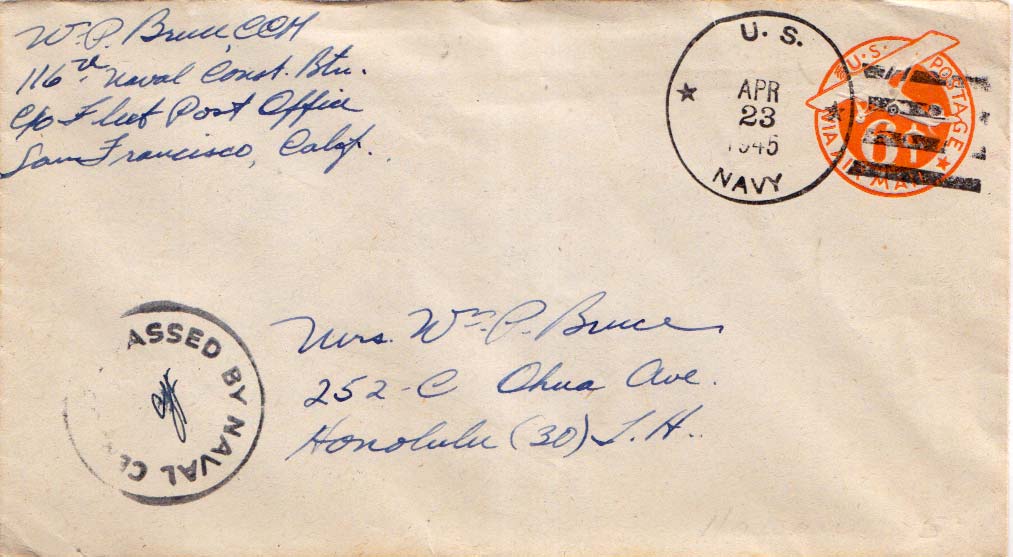 Wm. P. Bruce, CCM
116th Naval Const. Btn.
c/o Fleet Post Office
San Francisco, Calif.
U. S.
APR
23
1945
NAVY
U.S. POSTAGE
6¢
VIA AIR MAIL
ASSED BY NAVAL CE
Mrs. Wm. P. Bruce
252-C Ohua Ave.
Honolulu (30) T.H..